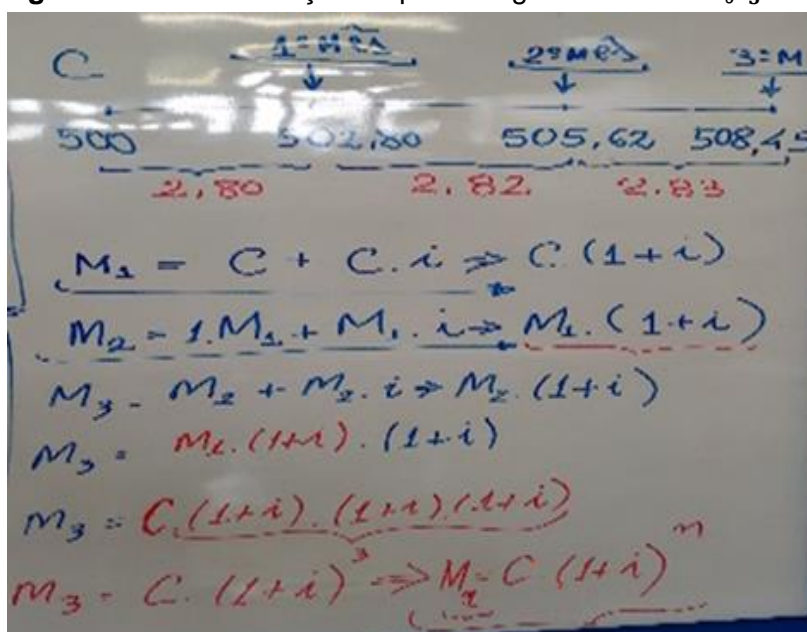 C 1º Mês 2º Mês 3º M
500 502,80 505,62 508,45
2,80 2,82 2,83
M₁ = C + C.i ⇒ C.(1+i)
M₂ = 1.M₁ + M₁.i ⇒ M₁.(1+i)
M₃ = M₂ + M₂.i ⇒ M₂.(1+i)
M₃ = M₁.(1+i).(1+i)
M₃ = C.(1+i).(1+i).(1+i)
M₃ = C.(1+i)³ ⇒ M = C (1+i)ⁿ